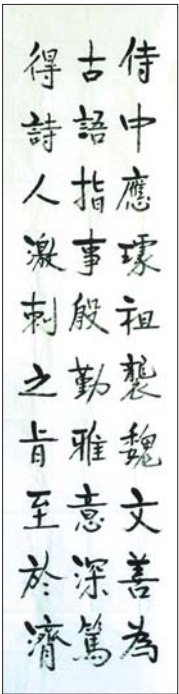 侍中應璩祖襲魏文善為
古語指事殷勤雅意深篤
得詩人激刺之旨至於濟